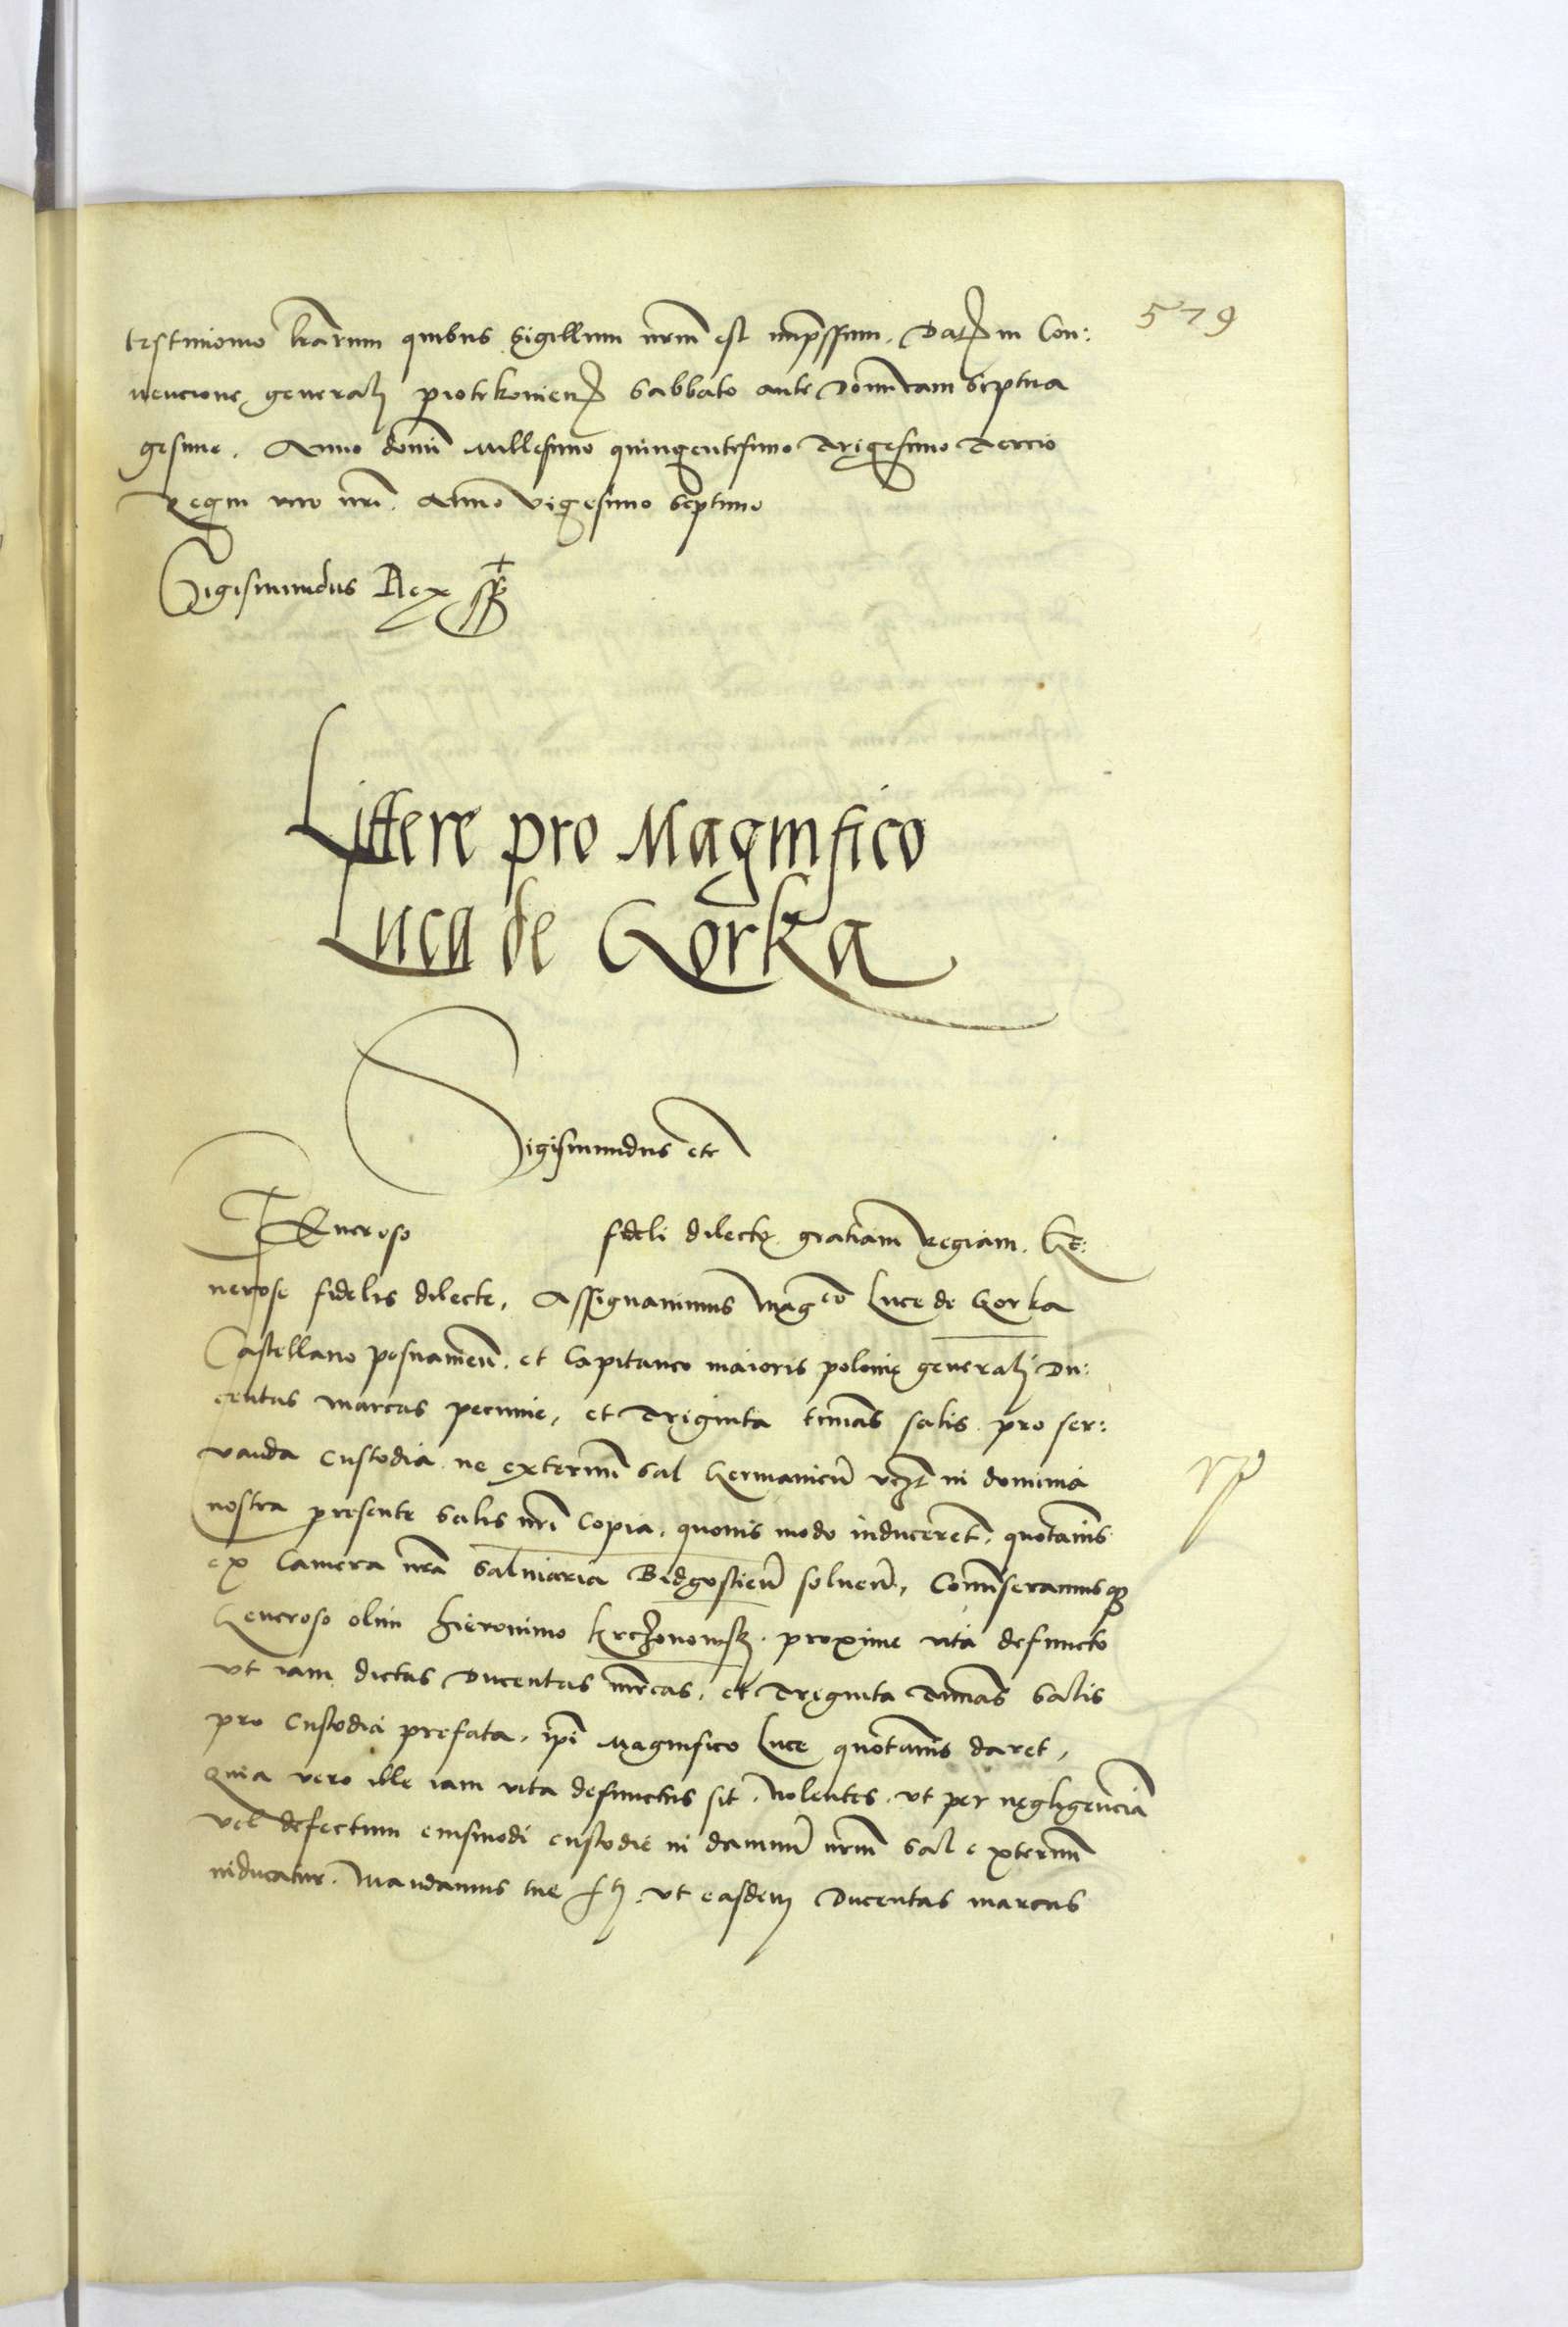 579
testimonio lrarum quibus Sigillum nrm est impssum. Dat in Con:
vencione generali piotrkoviens Sabbato ante Dominicam septua
gesime. Anno domi Millesimo quingentesimo Trigesimo Tercio
Regni vero nri. Anno vigesimo septimo
Sigismundus Rex
Littere pro Magnifico
Luca de Gorka
Sigismundus etc
Generoso fideli dilecto gratiam Regiam. Ge:
nerose fidelis dilecte. Assignavimus Magco Luce de Gorka
Castellano posnanien. et Capitaneo maioris polonie generali Du:
centas marcas pecunie, et Triginta tunas salis pro ser:
vanda custodia ne externu Sal Germanicu in dominia
nostra presente Salis nri Copia. quovis modo induceret. quotanis
ex Camera nra Salinaria Bidgostien solven. Comiseramusque
Generoso olim Hieronimo proxime vita defuncto
vt iam dictas Ducentas mrcas. et Triginta Tunas Salis
pro Custodia prefata. ipi Magnifico Luce quotanis daret,
Quia vero ille iam vita defunctus sit. Nolentes. vt per negligencia
vel defectum eiusmodi custodie in damnu nrm Sal externu
inducatur. Mandamus tue vt easdem Ducentas marcas